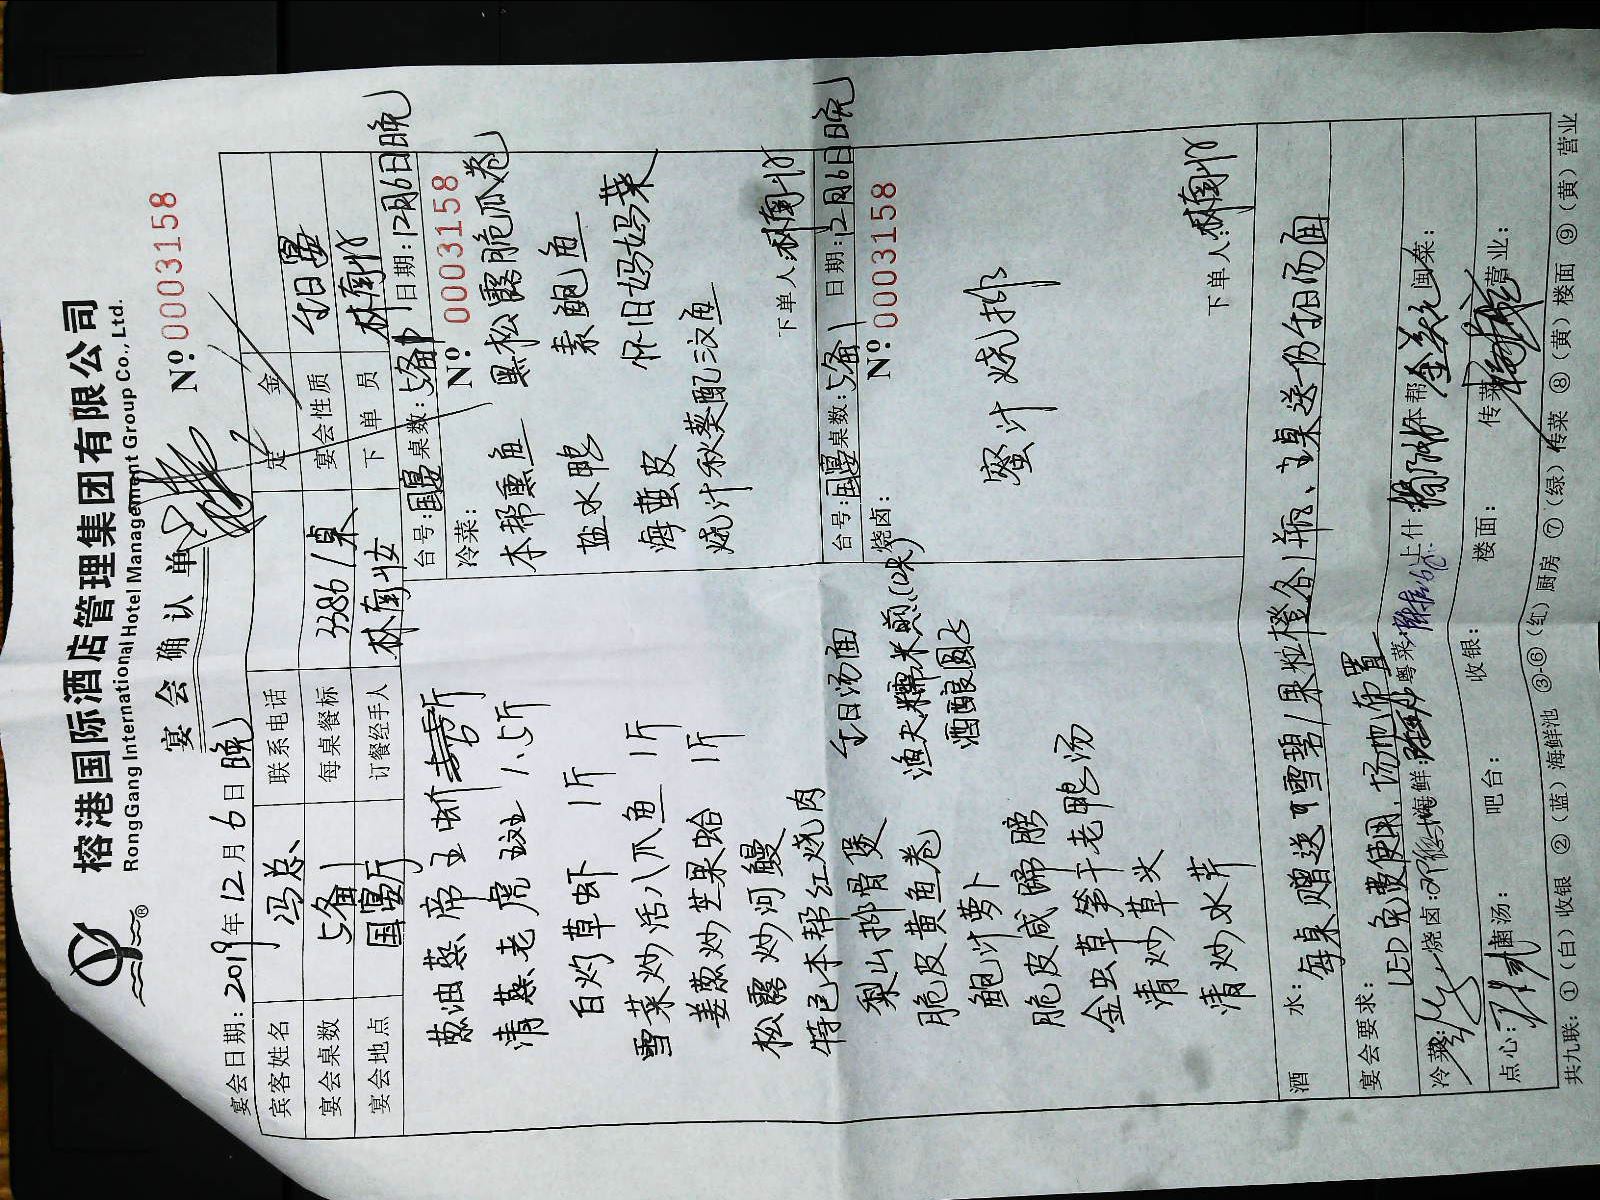 榕港国际酒店管理集团有限公司
RongGang International Hotel Management Group Co., Ltd.
®
宴会确认单
Nº:0003158
宴会日期:2019年12月6日晚
定金
宾客姓名 冯总 联系电话 宴会性质 生日宴
宴会桌数 5备1 每桌餐标 3386/桌 下单员 林南妆
宴会地点 国宴厅 订餐经手人 林南妆
台号:国宴 桌数:5备1 日期:12月6日晚
冷菜: Nº 0003158
本帮熏鱼 黑松露脆瓜卷
盐水鸭 素鲍鱼
海蜇皮 怀旧妈妈菜
烧汁秋葵配汶鱼
下单人:林南妆
台号:国宴 桌数:5备1 日期:12月6日晚
烧卤: Nº:0003158
蜜汁烧排
下单人:林南妆
葱油蒸帝王蟹
清蒸老虎斑 1.5斤
白灼草虾 1斤
雪菜炒活八爪鱼 1斤
姜葱炒芒果蛤 1斤
松露炒河鳗
特色本帮红烧肉
梨山排骨煲
脆皮黄鱼卷
鲍汁萝卜
脆皮咸蹄膀
金虫草笋干老鸭汤
清炒草头
清炒水芹
生日汤面
渔夫糯米煎
酒酿圆子
酒水: 每桌赠送1雪碧1果粒橙各1瓶、主桌送1份生日汤面
宴会要求: LED免费使用,场地布置
冷菜: 烧卤: 海鲜: 粤菜: 上什: 本帮: 闽菜:
点心: 菌汤: 吧台: 收银: 楼面: 传菜: 营业:
共九联: ①(白)收银 ②(蓝)海鲜池 ③-⑥(红)厨房 ⑦(绿)传菜 ⑧(黄)楼面 ⑨(黄)营业